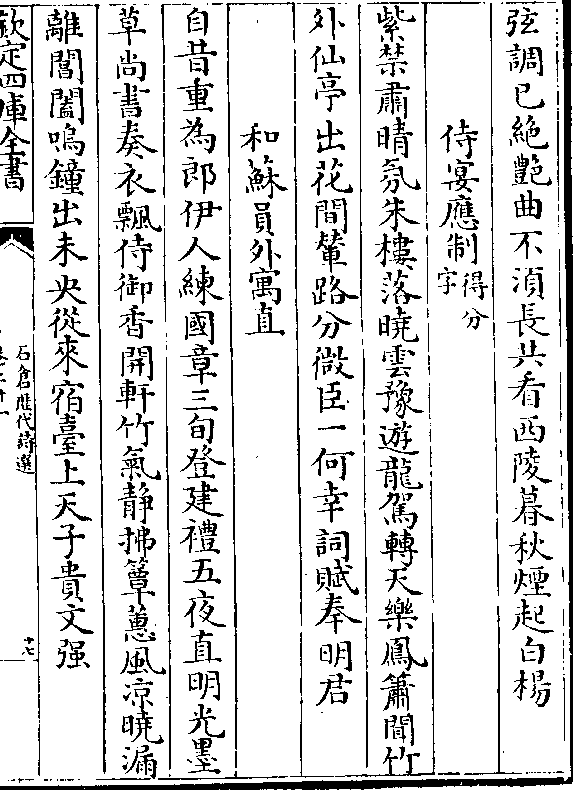 弦調已絶艷曲不湏長共看西陵暮秋煙起白楊
侍宴應制得分字
紫禁肅晴氛朱樓落曉雲豫遊龍駕轉天樂鳳簫聞竹
外仙亭出花間輦路分微臣一何幸詞賦奉明君
和蘇員外寓直
自昔重為郎伊人練國章三旬登建禮五夜直明光墨
草尚書奏衣飄侍御香開軒竹氣静拂簟蕙風涼曉漏
離閶闔鳴鐘出未央從來宿臺上天子貴文强
欽定四庫全書
石倉歴代詩選
十七